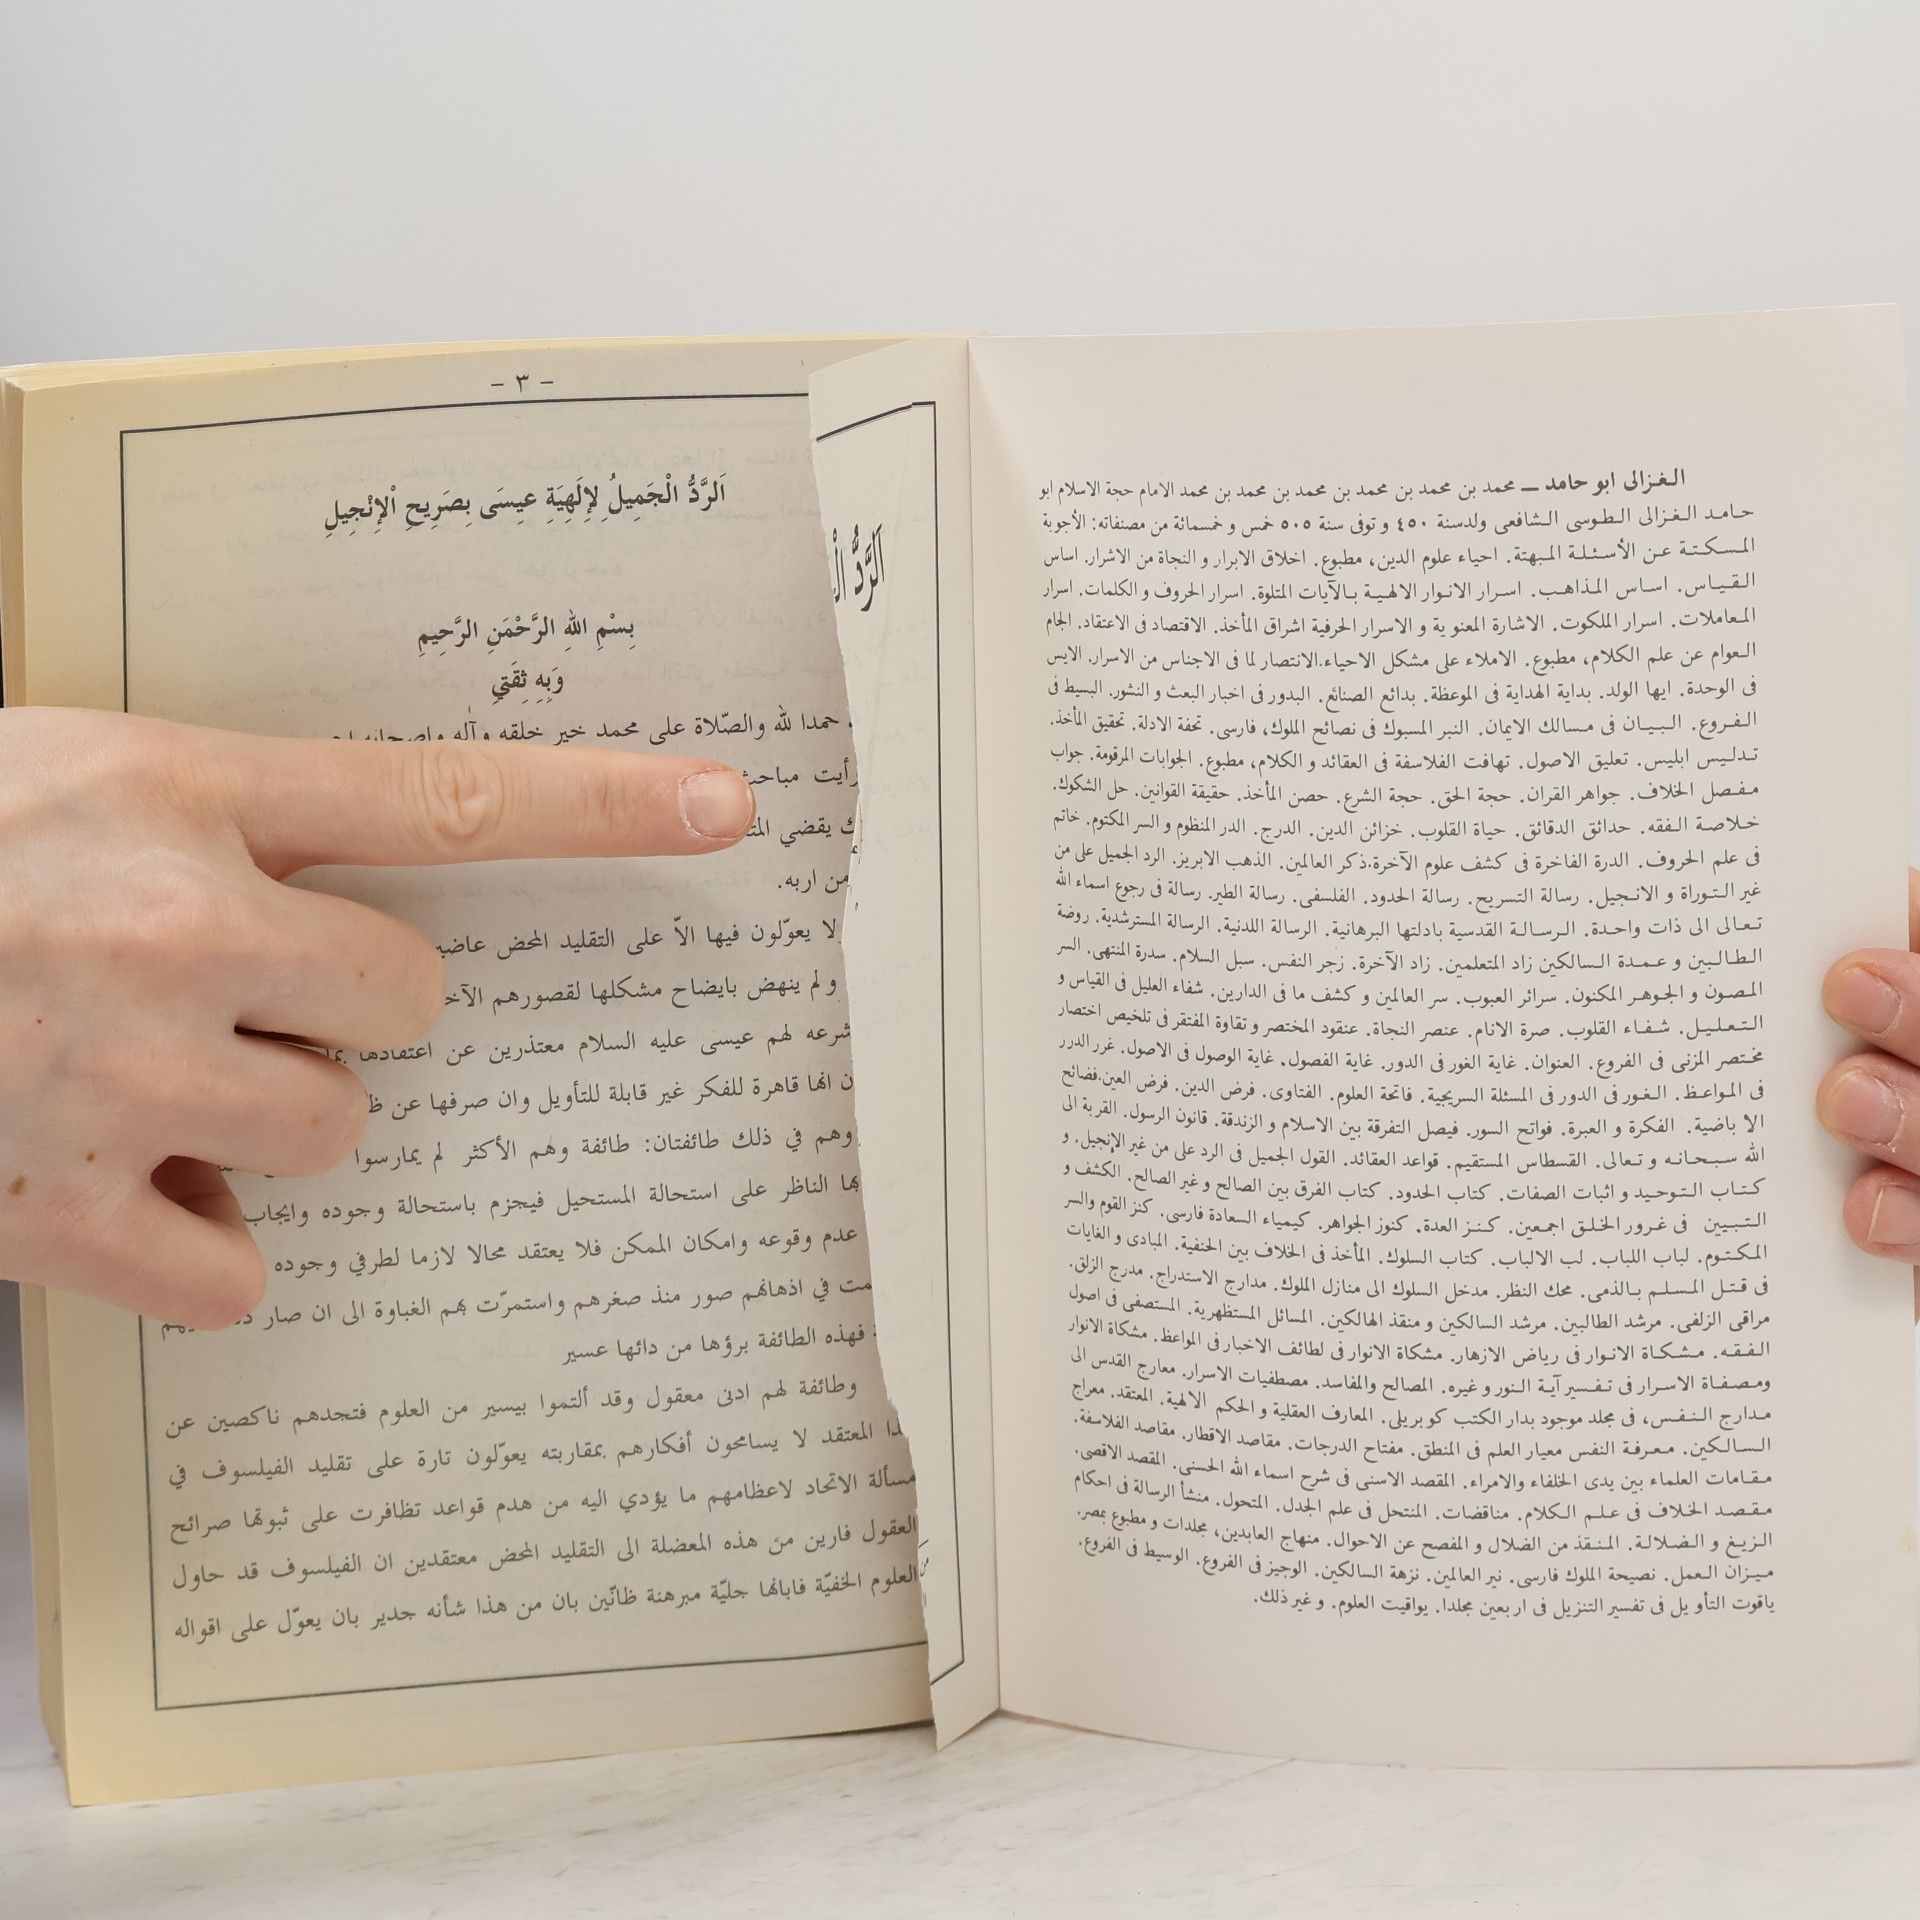 الـغـزالى ابو حامد ــ محمد بن محمد بن محمد بن محمد بن محمد بن محمد الامام حجة الاسلام ابو
حـامـد الـغـزالى الـطـوسى الـشافعى ولدسنة ٤٥٠ و توفى سنة ٥٠٥ خمس و خمسمائة من مصنفاته: الأجوبة
المـسـكـتـة عـن الأسـئـلـة المـبهتة. احياء علوم الدين، مطبوع. اخلاق الابرار و النجاة من الاشرار. اساس
القـيـاس. اسـاس المـذاهـب. اسـرار الانـوار الالهـية بـالآيات المتلوة. اسرار الحروف و الكلمات. اسرار
المـعاملات. اسرار الملكوت. الاشارة المعنو ية و الاسرار الحرفية اشراق المأخذ. الاقتصاد فى الاعتقاد. الجام
الـعوام عن علم الكلام، مطبوع. الاملاء على مشكل الاحياء.الانتصار لما فى الاجناس من الاسرار. الايس
فى الوحدة. ايها الولد. بداية الهداية فى الموعظة. بدائع الصنائع. البدور فى اخبار البعث و النشور. البسيط فى
الـفـروع. الـبـيـان فى مسالك الايمان. النبر المسبوك فى نصائح الملوك، فارسى. تحفة الادلة. تحقيق المأخذ.
تـدلـيـس ابليس. تعليق الاصول. تهافت الفلاسفة فى العقائد و الكلام، مطبوع. الجوابات المرقومة. جواب
مـفـصل الخلاف. جواهر القران. حجة الحق. حجة الشرع. حصن المأخذ. حقيقة القوانين. حل الشكوك.
خـلاصـة الـفقه. حدائق الدقائق. حياة القلوب. خزائن الدين. الدرج. الدر المنظوم و السر المكتوم. خاتم
فى علم الحروف. الدرة الفاخرة فى كشف علوم الآخرة.ذكر العالمين. الذهب الابريز. الرد الجميل على من
غير الـتـوراة و الانـجيل. رسالة التسريح. رسالة الحدود. الفلسفى. رسالة الطير. رسالة فى رجوع اسماء الله
تـعـالى الى ذات واحـدة. الـرسـالـة القدسية بادلتها البرهانية. الرسالة اللدنية. الرسالة المسترشدية. روضة
الـطـالـبين و عـمـدة الـسالكين زاد المتعلمين. زاد الآخرة. زجر النفس. سبل السلام. سدرة المنتهى. السر
المـصـون و الجـوهـر المكنون. سرائر العبوب. سر العالمين و كشف ما فى الدارين. شفاء العليل فى القياس و
الـتـعـلـيـل. شـفـاء القلوب. صرة الانام. عنصر النجاة. عنقود المختصر و تقاوة المفتقر فى تلخيص اختصار
مخـتصر المزنى فى الفروع. العنوان. غاية الغور فى الدور. غاية الفصول. غاية الوصول فى الاصول. غرر الدرر
فى المـواعـظ. الـغور فى الدور فى المسئلة السريجية. فاتحة العلوم. الفتاوى. فرض الدين. فرض العين.فضائح
الا باضية. الفكرة و العبرة. فواتح السور. فيصل التفرقة بين الاسلام و الزندقة. قانون الرسول. القربة الى
الله سـبـحـانـه و تـعالى. القسطاس المستقيم. قواعد العقائد. القول الجميل فى الرد على من غير الإنجيل. و
كـتـاب الـتـوحـيد و اثبات الصفات. كتاب الحدود. كتاب الفرق بين الصالح و غير الصالح. الكشف و
الـتـبـيين فى غـرور الخـلـق اجمـعين. كـنـز العدة. كنوز الجواهر. كيمياء السعادة فارسى. كنز القوم والسر
المـكـتـوم. لباب اللباب. لب الالباب. كتاب السلوك. المأخذ فى الخلاف بين الحنفية. المبادى و الغايات
فى قـتـل المـسـلـم بـالذمى. محك النظر. مدخل السلوك الى منازل الملوك. مدارج الاستدراج. مدرج الزلق.
مراقى الزلفى. مرشد الطالبين. مرشد السالكين و منقذ الهالكين. المسائل المستظهرية. المستصفى فى اصول
الـفـقـه. مـشـكـاة الانـوار فى رياض الازهار. مشكاة الانوار فى لطائف الاخبار فى المواعظ. مشكاة الانوار
ومـصـفـاة الاسـرار فى تـفـسير آيـة الـنور و غيره. المصالح والمفاسد. مصطفيات الاسرار. معارج القدس الى
مـدارج الـنـفـس، فى مجلد موجود بدار الكتب كو بريلى. المعارف العقلية و الحكم الالهية. المعتقد. معراج
الـسـالـكين. مـعـرفـة النفس معيار العلم فى المنطق. مفتاح الدرجات. مقاصد الاقطار. مقاصد الفلاسفة.
مـقـامات العلماء بين يدى الخلفاء والامراء. المقصد الاسنى فى شرح اسماء الله الحسنى. المقصد الاقصى.
مـقـصـد الخـلاف فى عـلـم الـكـلام. مناقضات. المنتحل فى علم الجدل. المتحول. منشأ الرسالة فى احكام
الـزيـغ و الـضـلالـة. المـنـقذ من الضلال و المفصح عن الاحوال. منهاج العابدين، مجلدات و مطبوع بمصر.
مـيـزان العمل. نصيحة الملوك فارسى. نير العالمين. نزهة السالكين. الوجيز فى الفروع. الوسيط فى الفروع.
ياقوت التأو يل فى تفسير التنزيل فى ار بعين مجلدا. يواقيت العلوم. و غير ذلك.
– ٣ –
اَلرَّدُّ الْجَمِيلُ لِإِلَهِيَةِ عِيسَى بِصَرِيحِ اْلإِنْجِيلِ
اَلرَّدُّ
بِسْمِ اللهِ الرَّحْمَنِ الرَّحِيمِ
وَبِهِ ثِقَتِي
حمدا لله والصّلاة على محمد خير خلقه وآله واصحابه
رأيت
يقضي
من اربه.
لا يعوّلون فيها الاّ على التقليد المحض
ولم ينهض بايضاح مشكلها لقصورهم
شرعه لهم عيسى عليه السلام معتذرين عن اعتقادها
انها قاهرة للفكر غير قابلة للتأويل وان صرفها عن
وهم في ذلك طائفتان: طائفة وهم الأكثر لم يمارسوا
بها الناظر على استحالة المستحيل فيجزم باستحالة وجوده وايجاب
عدم وقوعه وامكان الممكن فلا يعتقد محالا لازما لطرفي وجوده
في اذهانهم صور منذ صغرهم واستمرّت بهم الغباوة الى ان صار
فهذه الطائفة برؤها من دائها عسير
وطائفة لهم ادنى معقول وقد ألتموا بيسير من العلوم فتجدهم ناكصين عن
المعتقد لا يسامحون أفكارهم بمقاربته يعوّلون تارة على تقليد الفيلسوف في
مسألة الاتحاد لاعظامهم ما يؤدي اليه من هدم قواعد تظافرت على ثبوتها صرائح
العقول فارين من هذه المعضلة الى التقليد المحض معتقدين ان الفيلسوف قد حاول
العلوم الخفيّة فابانها جليّة مبرهنة ظانّين بان من هذا شأنه جدير بان يعوّل على اقواله